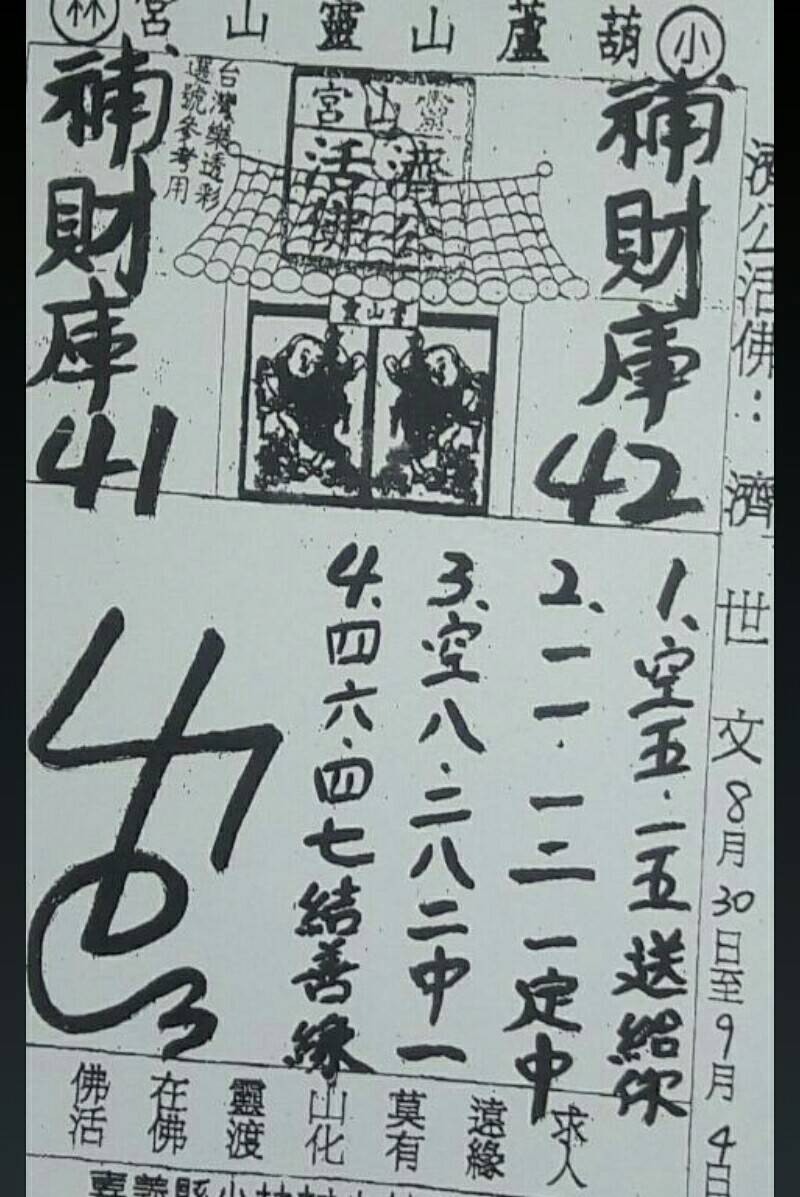 小葫蘆山靈山宮林
濟公活佛：濟世文8月30日至9月4日
補財庫42
靈山宮
濟公
活佛
台灣樂透彩
選號參考用
補財庫41
靈山宮
1、空五.二五送給你
2、一一.一二一定中
3、空八.二八二中一
4、四六.四七結善緣
求人
遠緣
莫有
山化
靈渡
在佛
佛活